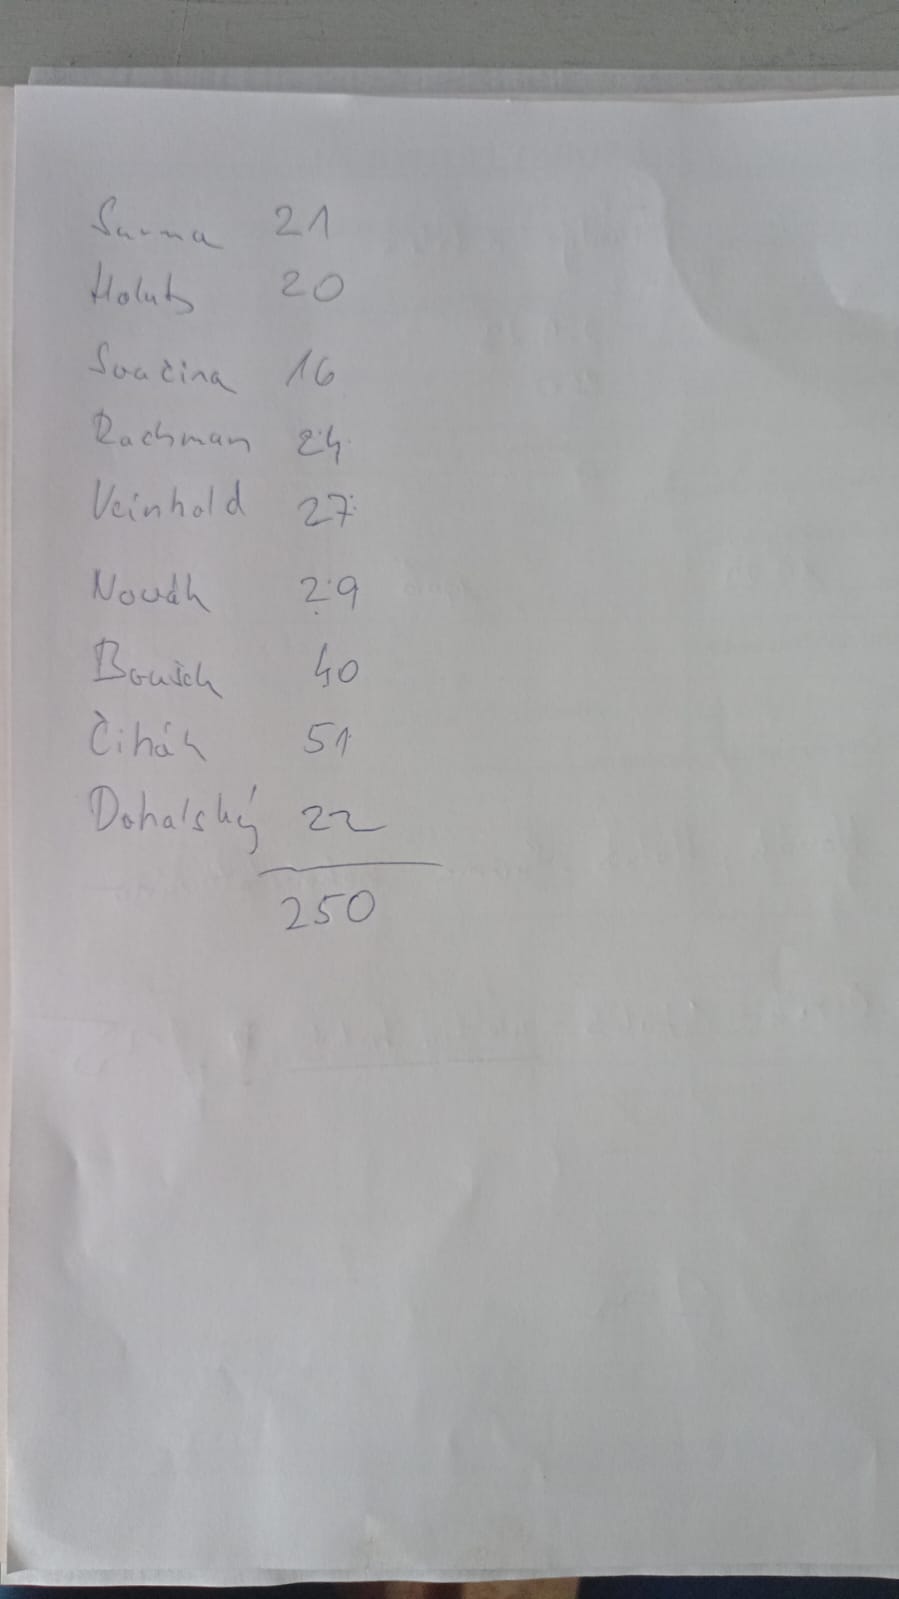 Surma 21
Holub 20
Svačina 16
Rachman 24
Veinhold 27
Novák 29
40
Čihák 51
Dohalský 22
250